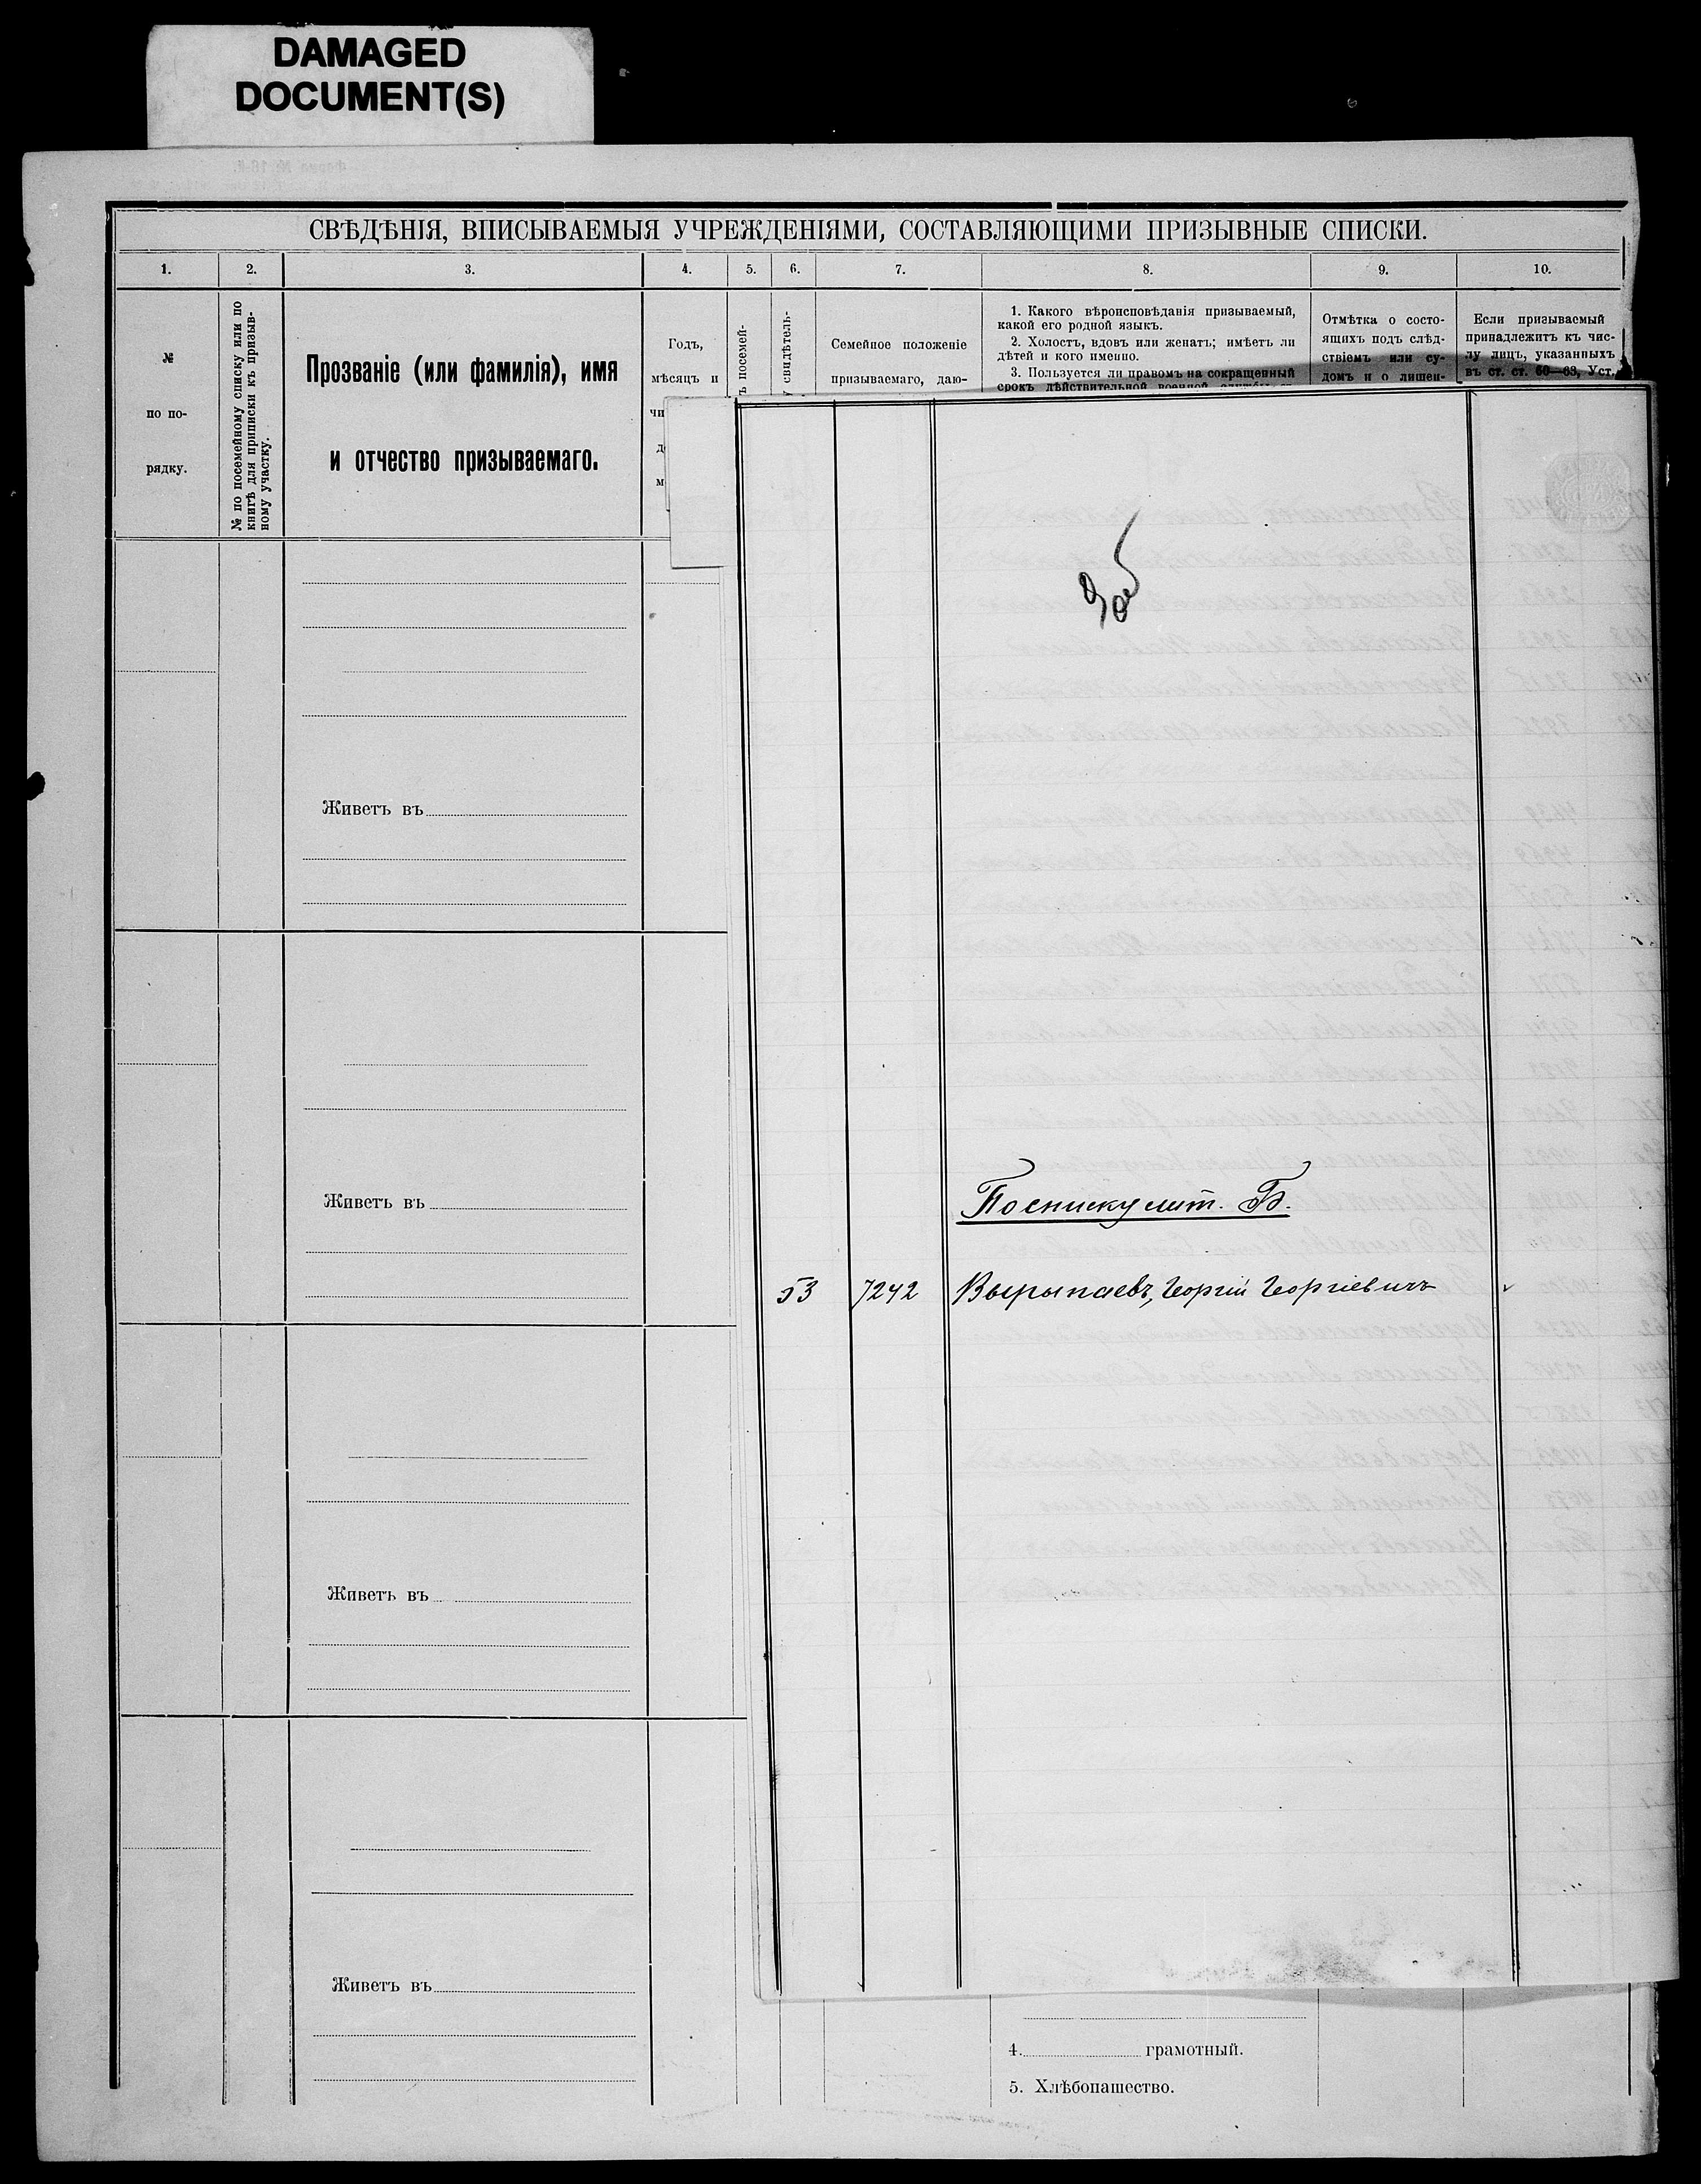 DAMAGED
DOCUMENT(S)
СВѢДѢНІЯ, ВПИСЫВАЕМЫЯ УЧРЕЖДЕНІЯМИ, СОСТАВЛЯЮЩИМИ ПРИЗЫВНЫЕ СПИСКИ.
1. 2. 3. 4. 5. 6. 7. 8. 9. 10.
№
по по-
рядку.
№ по посемейному списку или по
книгѣ для приписки къ призыв-
ному участку.
Прозваніе (или фамилія), имя
и отчество призываемаго.
Годъ,
мѣсяцъ и
чи
посемей-
свидѣтель-
Семейное положеніе
призываемаго, даю-
1. Какого вѣроисповѣданія призываемый,
какой его родной языкъ.
2. Холостъ, вдовъ или женатъ; имѣетъ ли
дѣтей и кого именно.
3. Пользуется ли правомъ на сокращенный
срокъ дѣйствительной военной службы
Отмѣтка о состо-
ящихъ подъ слѣд-
ствіемъ или су-
домъ и о лишен-
Если призываемый
принадлежитъ къ чис-
лу лицъ, указанныхъ
въ ст. ст. 60—63, Уст.
Живетъ въ
Живетъ въ
По списку лит. Б.
53 7242 Вырыпаевъ, Георгій Георгіевичъ
Живетъ въ
Живетъ въ
4. грамотный.
5. Хлѣбопашество.